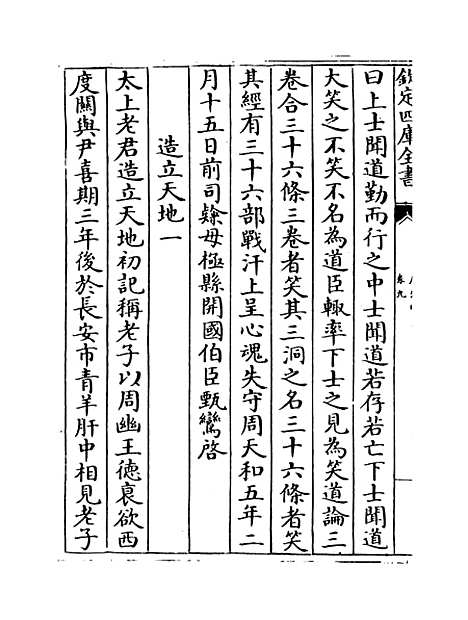 欽定四庫全書
卷九
曰上士聞道勤而行之中士聞道若存若亡下士聞道
大笑之不笑不名為道臣輒率下士之見為笑道論三
卷合三十六條三卷者笑其三洞之名三十六條者笑
其經有三十六部戰汗上呈心魂失守周天和五年二
月十五日前司隸毋極縣開國伯臣甄鸞啓
造立天地一
太上老君造立天地初記稱老子以周幽王德衰欲西
度關與尹喜期三年後於長安市青羊肝中相見老子